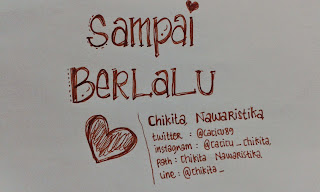 Sampai
BERLALU
Chikita Nawaristika
twitter : @cacicu89
instagram : @cacicu_chikita
path : Chikita Nawaristika
Line : @chikita_